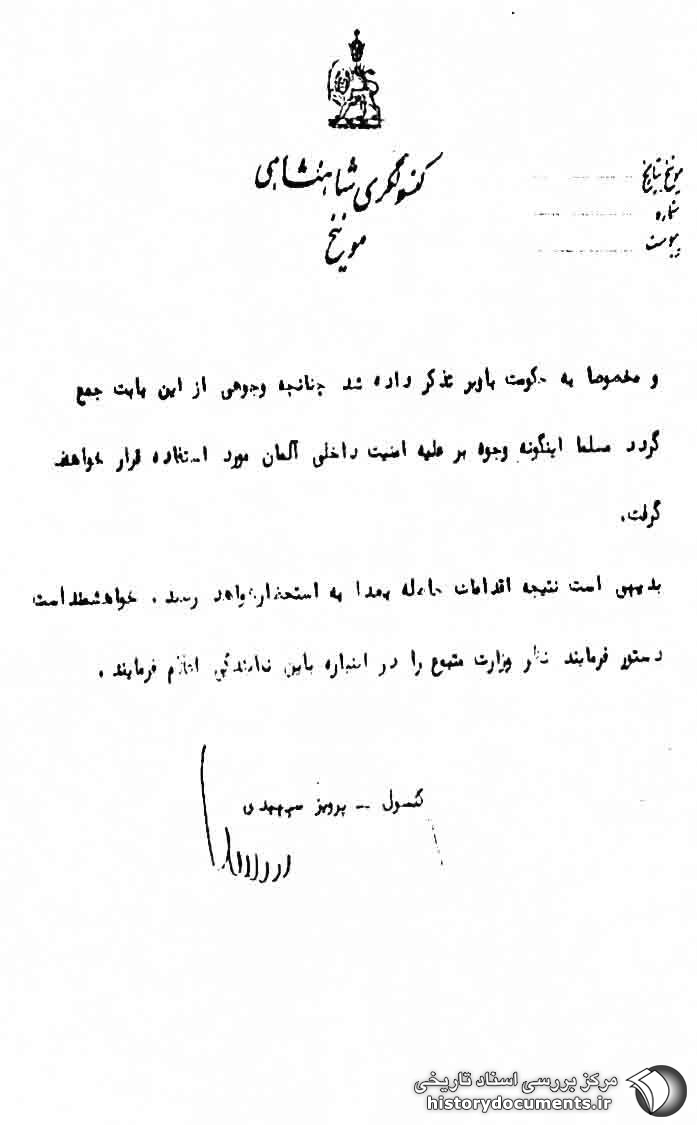 کنسولگری شاهنشاهی
مونیخ
مونیخ بتاریخ
شماره
پیوست
و مخصوصا به حکومت باویر تذکر داده شد چنانچه وجوهی از این بابت جمع
گردد مسلما اینگونه وجوه بر علیه امنیت داخلی آلمان مورد استفاده قرار خواهند
گرفت.
بدیهی است نتیجه اقدامات حاصله بعدا به استحضار خواهد رسید . خواهشمند است
دستور فرمایند نظر وزارت متبوع را در اینباره باین نمایندگی اعلام فرمایند .
کنسول – پرویز سپهبدی
مرکز بررسی اسناد تاریخی
historydocuments.ir